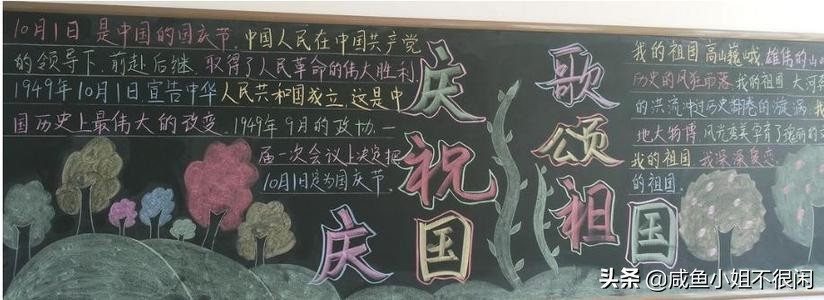 10月1日 是中国的国庆节.中国人民在中国共产党
的领导下,前赴后继,取得了人民革命的伟大胜利.
1949年10月1日,宣告中华人民共和国成立,这是中
国历史上最伟大的改变.1949年9月的政协一
届一次会议上决定把
10月1日定为国庆节.
庆祝国庆
歌颂祖国
我的祖国高山巍峨,雄伟的山
历史的风狂雨落 我的祖国 大河奔
的洪流冲过历史翻卷的漩涡 我
地大物博 风光秀美孕育了瑰丽的
我的祖国 我深深爱恋
的祖国.
头条 @咸鱼小姐不很闲